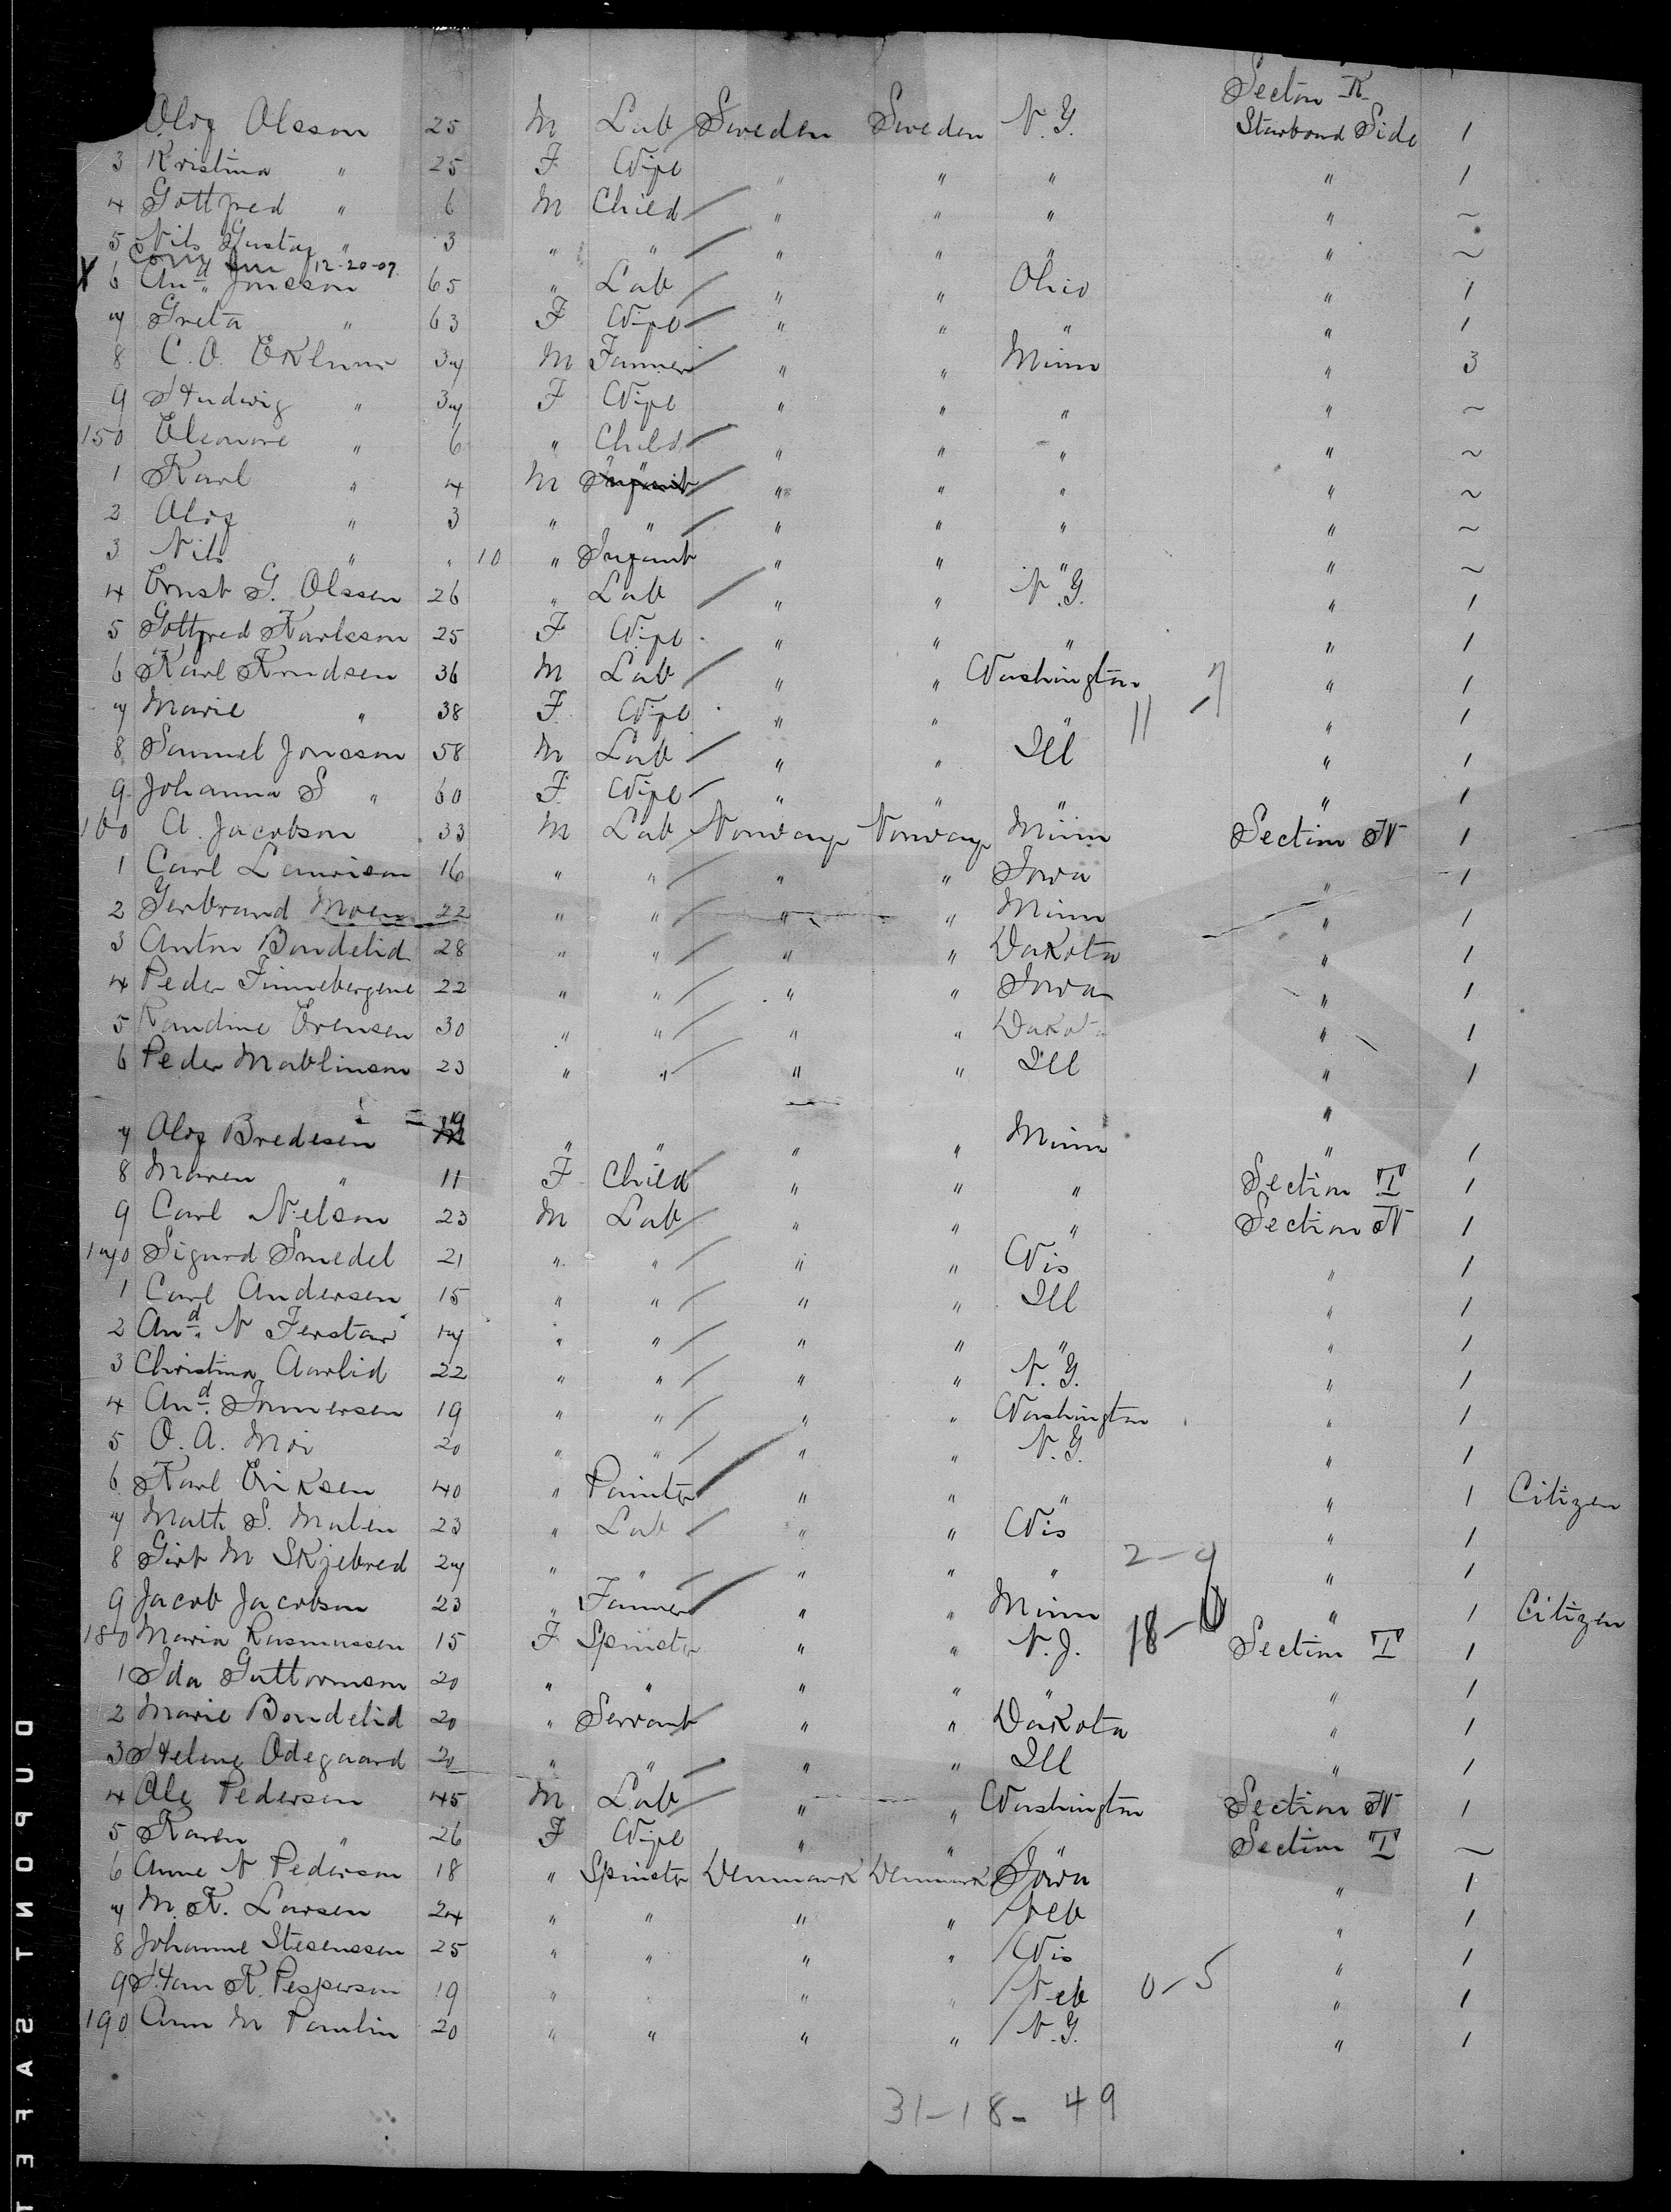 Section R
Olof Olsson 25 M Lab Sweden Sweden N.Y. Starboard Side 1
3 Kristina " 25 F Wife " " " " 1
4 Gottfred " 6 M Child " " " " ~
5 Nils Gustaf " 3 " " " " " " ~
12-20-07
X 6 And. Jonsson 65 " Lab " " Ohio " 1
7 Greta " 63 F Wife " " " " 1
8 C. O. Eklund 37 M Farmer " " Minn " 3
9 Hedwig " 37 F Wife " " " " ~
150 Eleonore " 6 " Child " " " " ~
1 Karl " 4 M " " " " " ~
2 Olof " 3 " " " " " " ~
3 Nils " " 10 " Infant " " " " ~
4 Ernst G. Olssen 26 " Lab " " N.Y. " 1
5 Gottfred Karlsson 25 F Wife " " " " 1
6 Karl Knudsen 36 M Lab " " Washington " 1
7 Marie " 38 F Wife " " " 11 - 7 " 1
8 Samuel Jonsson 58 M Lab " " Ill " 1
9 Johanna S " 60 F Wife " " " " 1
160 A. Jacobson 33 M Lab Norway Norway Minn Section N 1
1 Carl Laurison 16 " " " " Iowa " 1
2 Gerbrand Moen 22 " " " " Minn " 1
3 Anton Bondelid 28 " " " " Dakota " 1
4 Peder Finnebergene 22 " " " " Iowa " 1
5 Randine Evensen 30 " " " " Dakota " 1
6 Peder Mablinson 23 " " " " Ill " 1
"
7 Olof Bredesen 19 " " " " Minn " 1
8 Maren " 11 F Child " " " Section T 1
9 Carl Nelson 23 M Lab " " " Section N 1
170 Sigurd Smedel 21 " " " " Wis " 1
1 Carl Andersen 15 " " " " Ill " 1
2 And. N Ferstar 17 " " " " " " 1
3 Christina Aarlid 22 " " " " N.Y. " 1
4 And. Immersen 19 " " " " Washington " 1
5 O. A. Moi 20 " " " " N.Y. " 1
6 Karl Eriksen 40 " Painter " " " " 1 Citizen
7 Math S. Malen 23 " Lab " " Wis " 1
8 Girt M Skjebred 27 " " " " " 2-9 " 1
9 Jacob Jacobson 23 " Farmer " " Minn " 1 Citizen
180 Maria Rasmussen 15 F Spinster " " N.J. 18-0 Section T 1
1 Ida Guttormson 20 " " " " " " 1
2 Marie Bondelid 20 " Servant " " Dakota " 1
3 Helene Odegaard 20 " " " " Ill " 1
4 Ole Pedersen 45 M Lab " " Washington Section N 1
5 Karen " 26 F Wife " " " Section T ~
6 Anne N Pederson 18 " Spinster Denmark Denmark Iowa " 1
7 M. K. Larsen 24 " " " " Neb " 1
8 Johanne Stesenssen 25 " " " " Wis " 1
9 Han K. Pesperson 19 " " " " Neb 0-5 " 1
190 Ann M Pamlin 20 " " " " N.Y. " 1
31-18-49
DUPONT SAFET